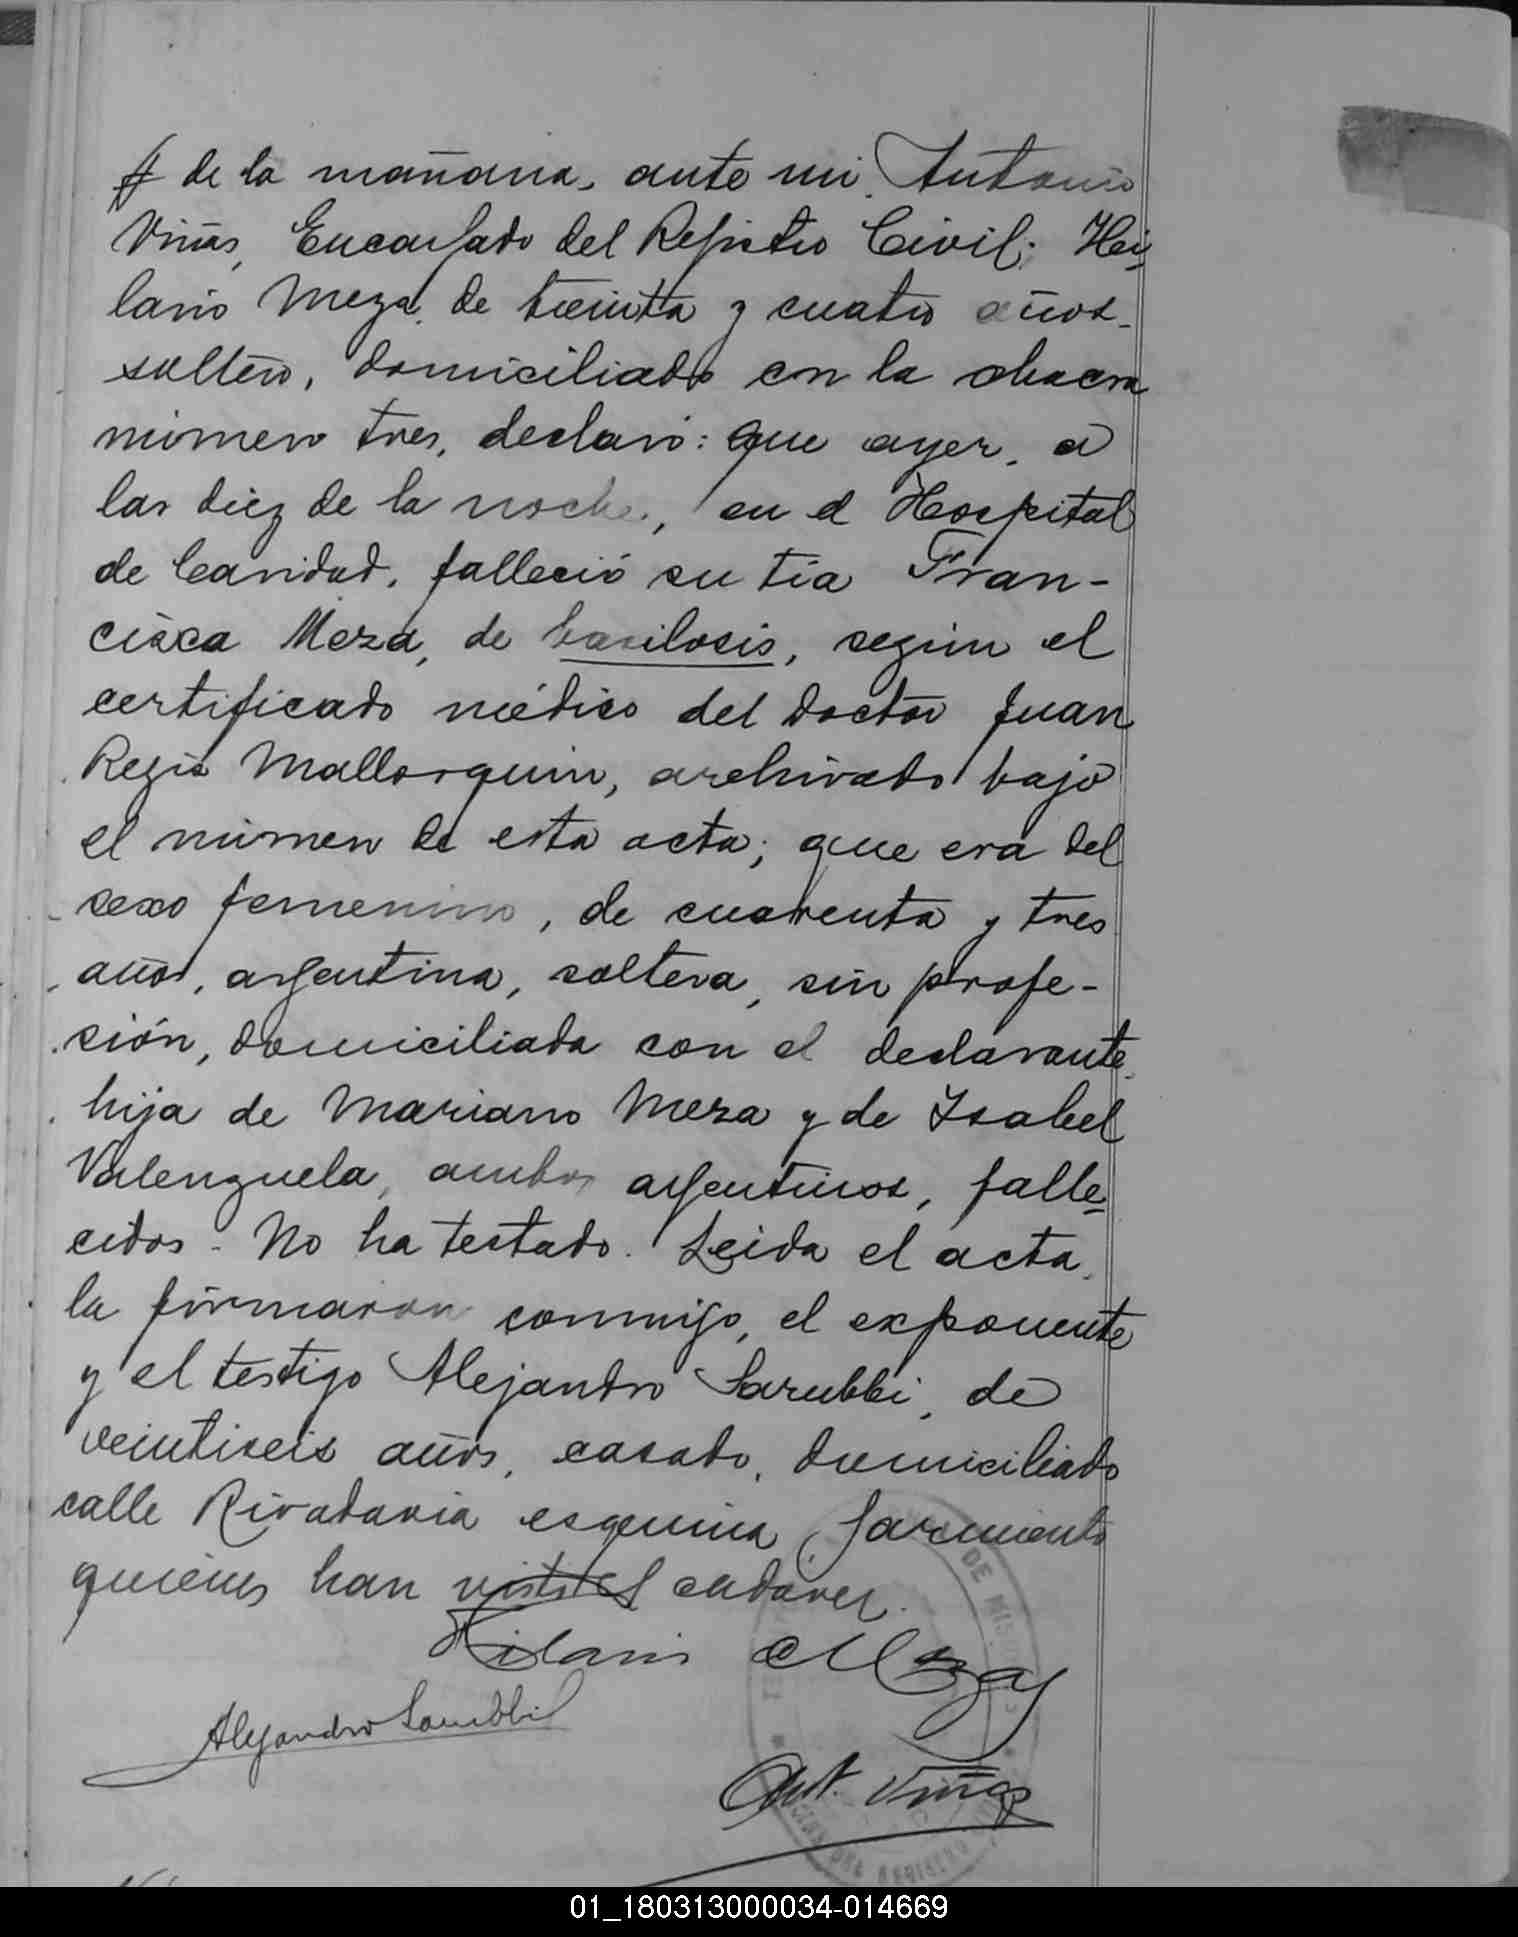 de la mañana, ante mi Antonio
Viñas, Encargado del Registro Civil; Hi-
lario Meza, de treinta y cuatro años,
soltero, domiciliado en la chacra
número tres, declaró: que ayer, a
las diez de la noche, en el Hospital
de Caridad, falleció su tia Fran-
cisca Meza, de bacilosis, según el
certificado médico del doctor Juan
Regis Mallorquin, archivado bajo
el número de esta acta; que era del
sexo femenino, de cuarenta y tres
años, argentina, soltera, sin profe-
sión, domiciliada con el declarante,
hija de Mariano Meza y de Isabel
Valenzuela, ambos argentinos, falle-
cidos. No ha testado. Leida el acta,
la firmaron conmigo, el exponente
y el testigo Alejandro Sarubbi, de
veintiseis años, casado, domiciliado
calle Rivadavia esquina Sarmiento
quienes han visto el cadaver.
Hilario Meza
Alejandro Sarubbi
Ant. Viñas
DE MIS
DEL REGISTRO
01_180313000034-014669